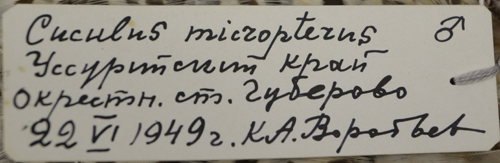 Cuculus micropterus ♂
Уссурийский край
Окрестн. ст. Губерово
22 VI 1949 г. К.А. Воробьев